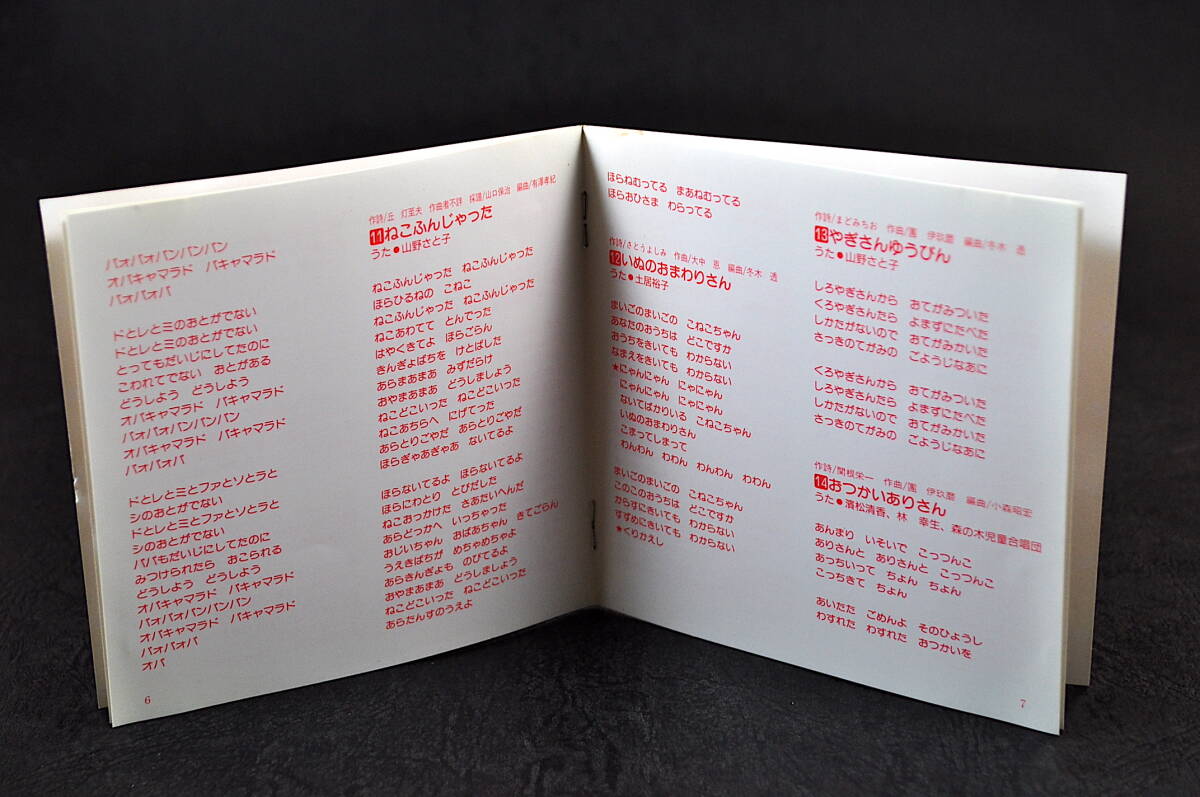 パオパオパンパンパン
オパキャマラド　パキャマラド
パオパオパ
ドとレとミのおとがでない
ドとレとミのおとがでない
とってもだいじにしてたのに
こわれてでない　おとがある
どうしよう　どうしよう
オパキャマラド　パキャマラド
パオパオパンパンパン
オパキャマラド　パキャマラド
パオパオパ
ドとレとミとファとソとラと
シのおとがでない
ドとレとミとファとソとラと
シのおとがでない
パパもだいじにしてたのに
みつけられたら　おこられる
どうしよう　どうしよう
オパキャマラド　パキャマラド
パオパオパンパンパン
オパキャマラド　パキャマラド
パオパオパ
オパ
6
作詩/丘　灯至夫　作曲者不詳　採譜/山口保治　編曲/有澤孝紀
11 ねこふんじゃった
うた●山野さと子
ねこふんじゃった　ねこふんじゃった
ほらひるねの　こねこ
ねこふんじゃった　ねこふんじゃった
ねこあわてて　とんでった
はやくきてよ　ほらごらん
きんぎょばちを　けとばした
あらまあまあ　みずだらけ
おやまあまあ　どうしましょう
ねこどこいった　ねこどこいった
ねこあちらへ　にげてった
あらとりごやだ　あらとりごやだ
ほらぎゃあぎゃあ　ないてるよ
ほらないてるよ　ほらないてるよ
ほらにわとり　とびだした
ねこおっかけた　さあたいへんだ
あらどっかへ　いっちゃった
おじいちゃん　おばあちゃん　きてごらん
うえきばちが　めちゃめちゃよ
あらきんぎょも　のびてるよ
おやまあまあ　どうしましょう
ねこどこいった　ねこどこいった
あらたんすのうえよ
ほらねむってる　まあねむってる
ほらおひさま　わらってる
作詩/さとうよしみ　作曲/大中　恩　編曲/冬木　透
12 いぬのおまわりさん
うた●土居裕子
まいごのまいごの　こねこちゃん
あなたのおうちは　どこですか
おうちをきいても　わからない
なまえをきいても　わからない
★にゃんにゃん　にゃにゃん
にゃんにゃん　にゃにゃん
ないてばかりいる　こねこちゃん
いぬのおまわりさん
こまってしまって
わんわん　わわん　わんわん　わわん
まいごのまいごの　こねこちゃん
このこのおうちは　どこですか
からすにきいても　わからない
すずめにきいても　わからない
★くりかえし
作詩/まどみちお　作曲/團　伊玖磨　編曲/冬木　透
13 やぎさんゆうびん
うた●山野さと子
しろやぎさんから　おてがみついた
くろやぎさんたら　よまずにたべた
しかたがないので　おてがみかいた
さっきのてがみの　ごようじなあに
くろやぎさんから　おてがみついた
しろやぎさんたら　よまずにたべた
しかたがないので　おてがみかいた
さっきのてがみの　ごようじなあに
作詩/関根栄一　作曲/團　伊玖磨　編曲/小森昭宏
14 おつかいありさん
うた●濱松清香、林　幸生、森の木児童合唱団
あんまり　いそいで　こっつんこ
ありさんと　ありさんと　こっつんこ
あっちいって　ちょん　ちょん
こっちきて　ちょん
あいたた　ごめんよ　そのひょうし
わすれた　わすれた　おつかいを
7